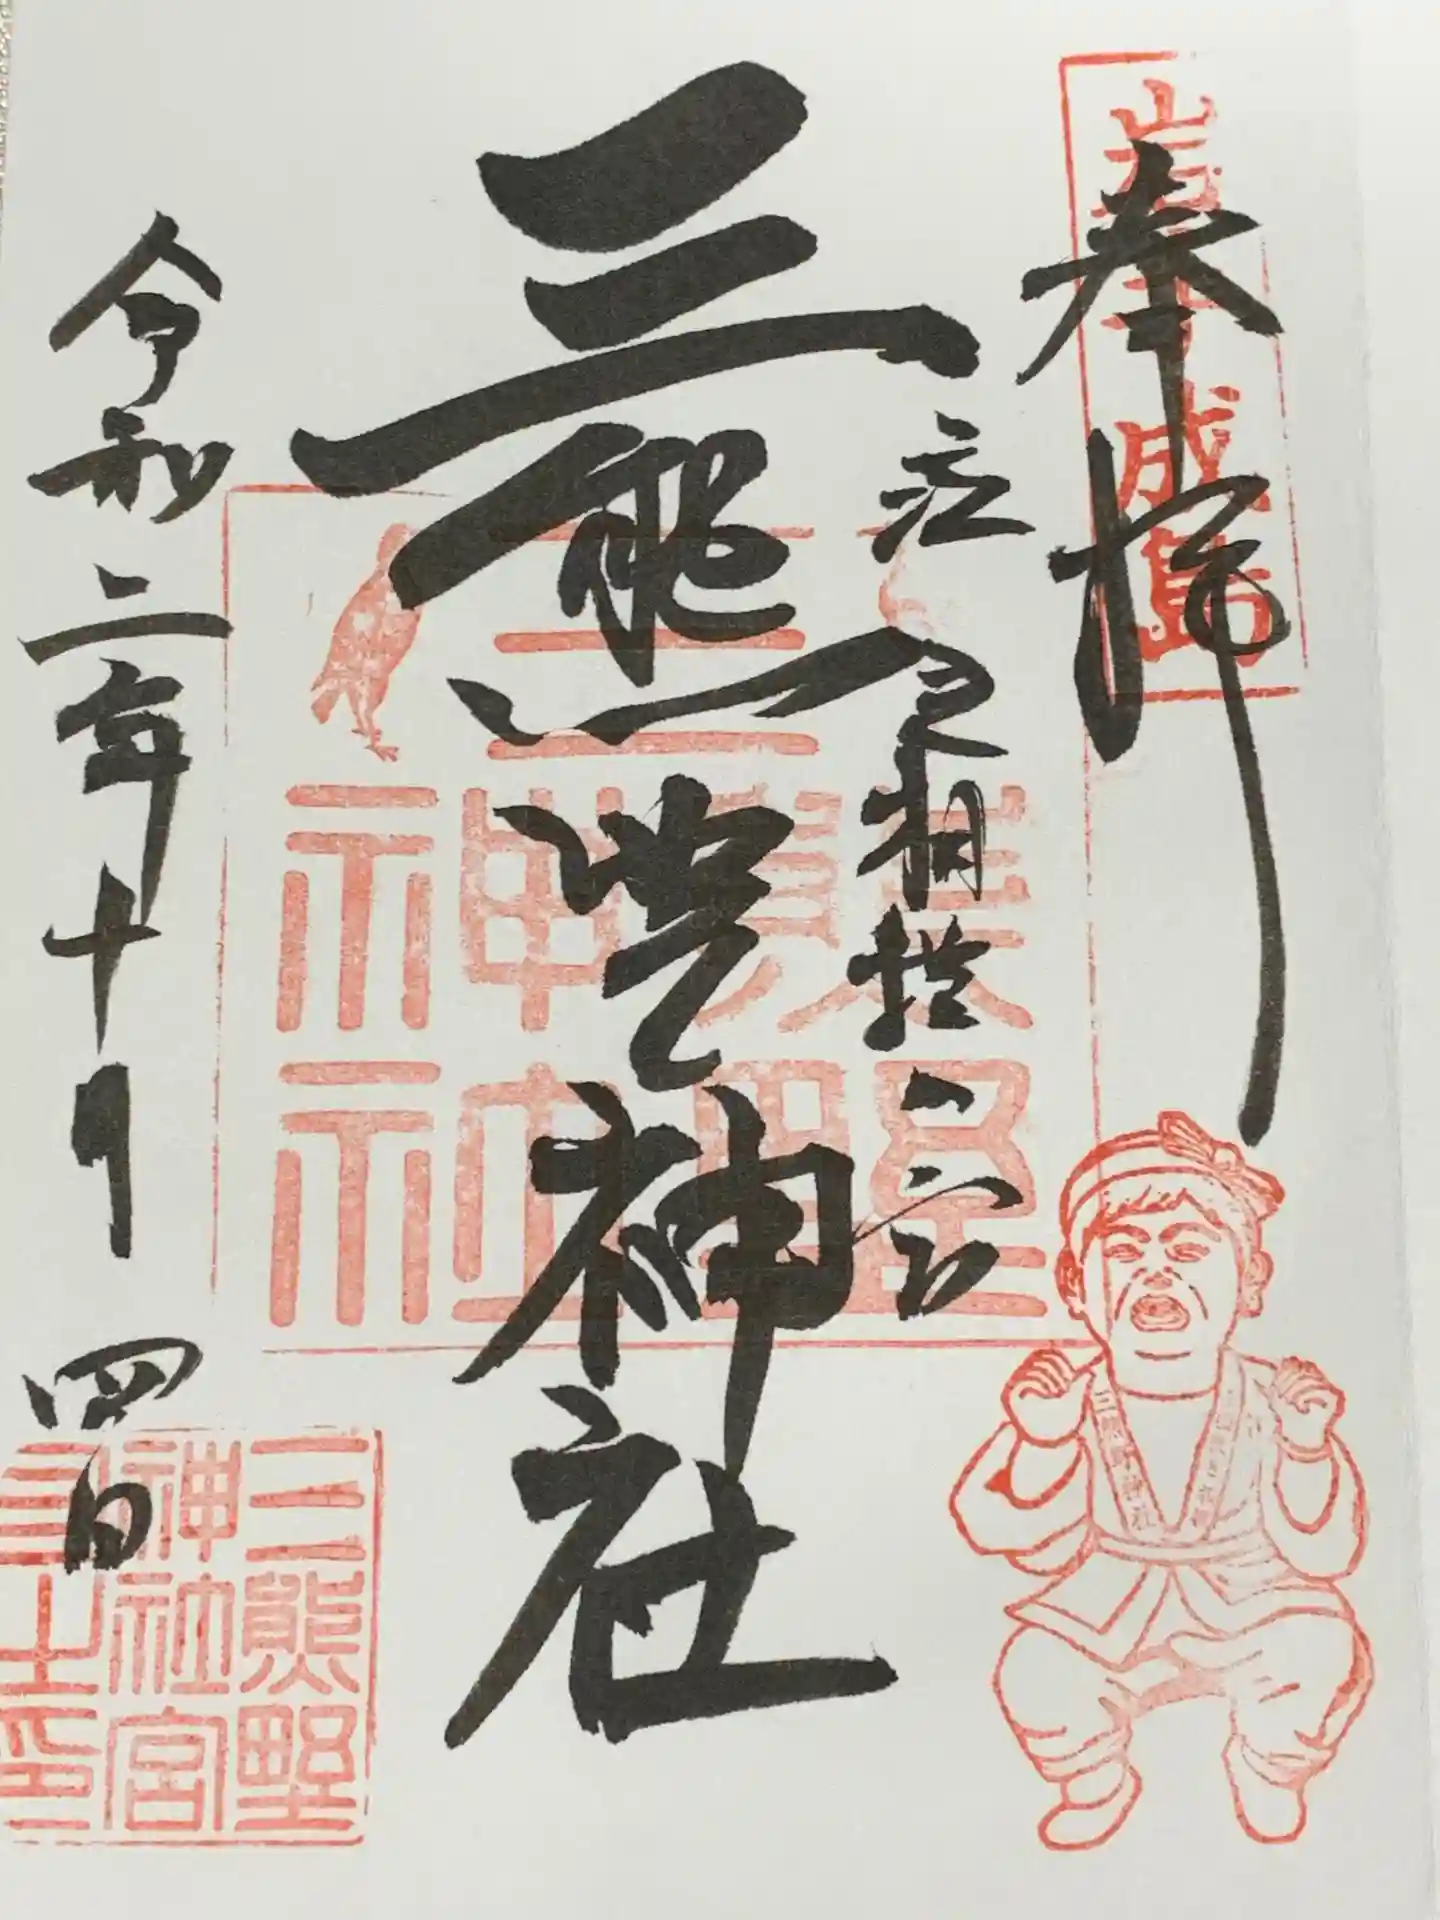 奉拝
岩手 成島
泣き相撲の宮
三熊野神社
三熊野神社
令和二年十月四日
三熊野
神社宮
司之印